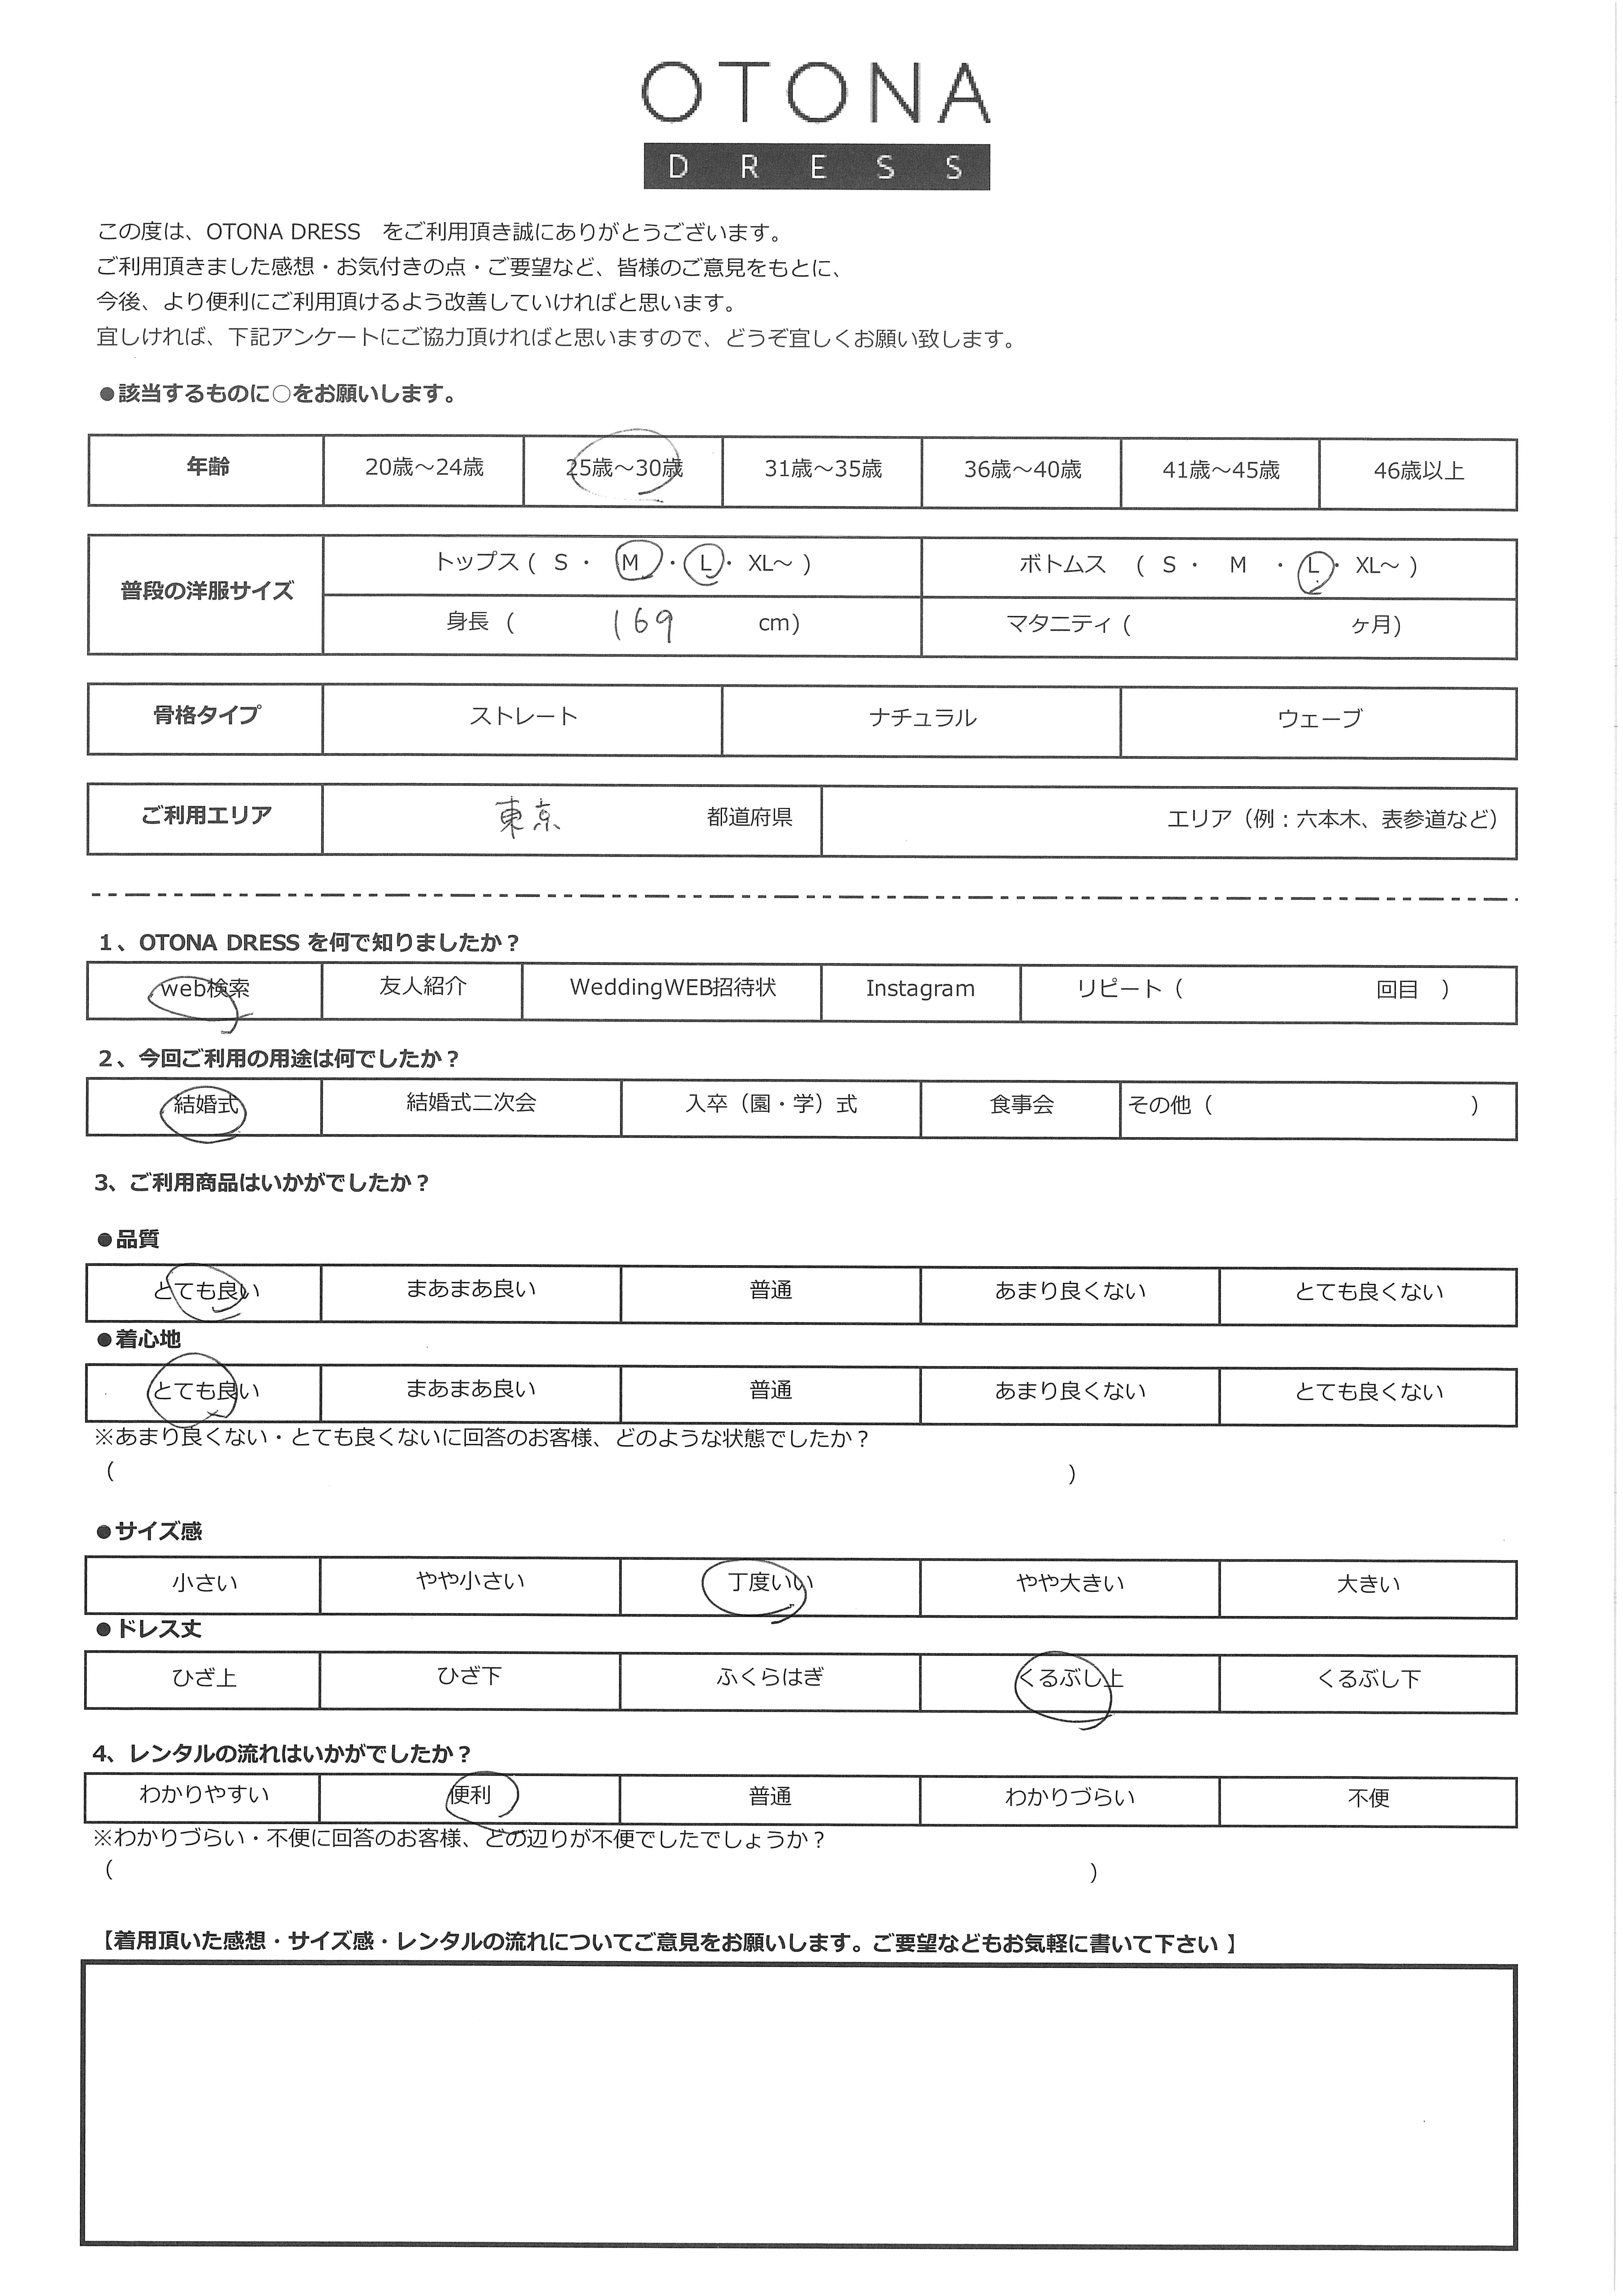 OTONA
DRESS
この度は、OTONA DRESS　をご利用頂き誠にありがとうございます。
ご利用頂きました感想・お気付きの点・ご要望など、皆様のご意見をもとに、
今後、より便利にご利用頂けるよう改善していければと思います。
宜しければ、下記アンケートにご協力頂ければと思いますので、どうぞ宜しくお願い致します。
●該当するものに○をお願いします。
年齢 20歳～24歳 25歳～30歳 31歳～35歳 36歳～40歳 41歳～45歳 46歳以上
普段の洋服サイズ トップス ( S ・ M ・ L ・ XL～ ) ボトムス ( S ・ M ・ L ・ XL～ )
身長 ( 169 cm) マタニティ ( ヶ月)
骨格タイプ ストレート ナチュラル ウェーブ
ご利用エリア 東京 都道府県 エリア（例：六本木、表参道など）
1、OTONA DRESS を何で知りましたか？
web検索 友人紹介 WeddingWEB招待状 Instagram リピート（ 回目 ）
2、今回ご利用の用途は何でしたか？
結婚式 結婚式二次会 入卒（園・学）式 食事会 その他（ ）
3、ご利用商品はいかがでしたか？
●品質
とても良い まあまあ良い 普通 あまり良くない とても良くない
●着心地
とても良い まあまあ良い 普通 あまり良くない とても良くない
※あまり良くない・とても良くないに回答のお客様、どのような状態でしたか？
（ ）
●サイズ感
小さい やや小さい 丁度いい やや大きい 大きい
●ドレス丈
ひざ上 ひざ下 ふくらはぎ くるぶし上 くるぶし下
4、レンタルの流れはいかがでしたか？
わかりやすい 便利 普通 わかりづらい 不便
※わかりづらい・不便に回答のお客様、どの辺りが不便でしたでしょうか？
（ ）
【着用頂いた感想・サイズ感・レンタルの流れについてご意見をお願いします。ご要望などもお気軽に書いて下さい 】